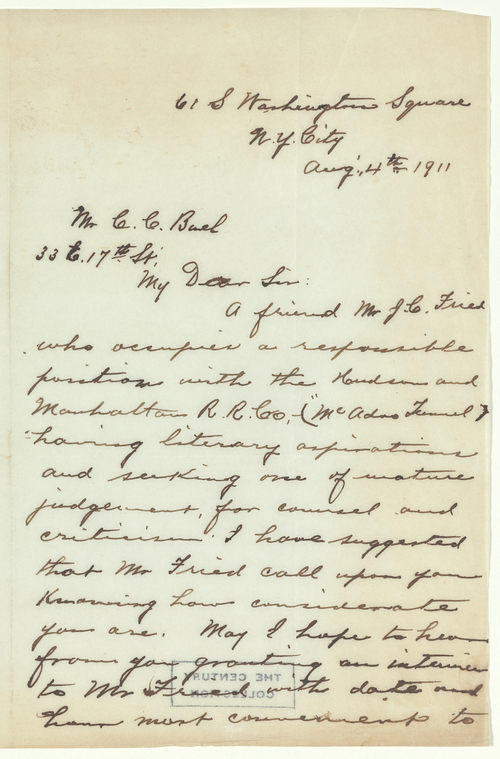 61 S Washington Square
N.Y. City
Aug., 4th 1911
Mr C. C. Buel
33 E. 17th St.
My Dear Sir:
A friend Mr J. C. Fried
who occupies a responsible
position with the Hudson and
Manhattan R. R. Co, ("McAdoo Tunnel")
having literary aspirations
and seeking one of mature
judgement, for counsel and
criticism. I have suggested
that Mr Fried call upon you
Knowing how considerate
you are. May I hope to hear
from you granting an interview
to Mr Fried with date and
hour most convenient to
THE CENTURY
COLLECTION